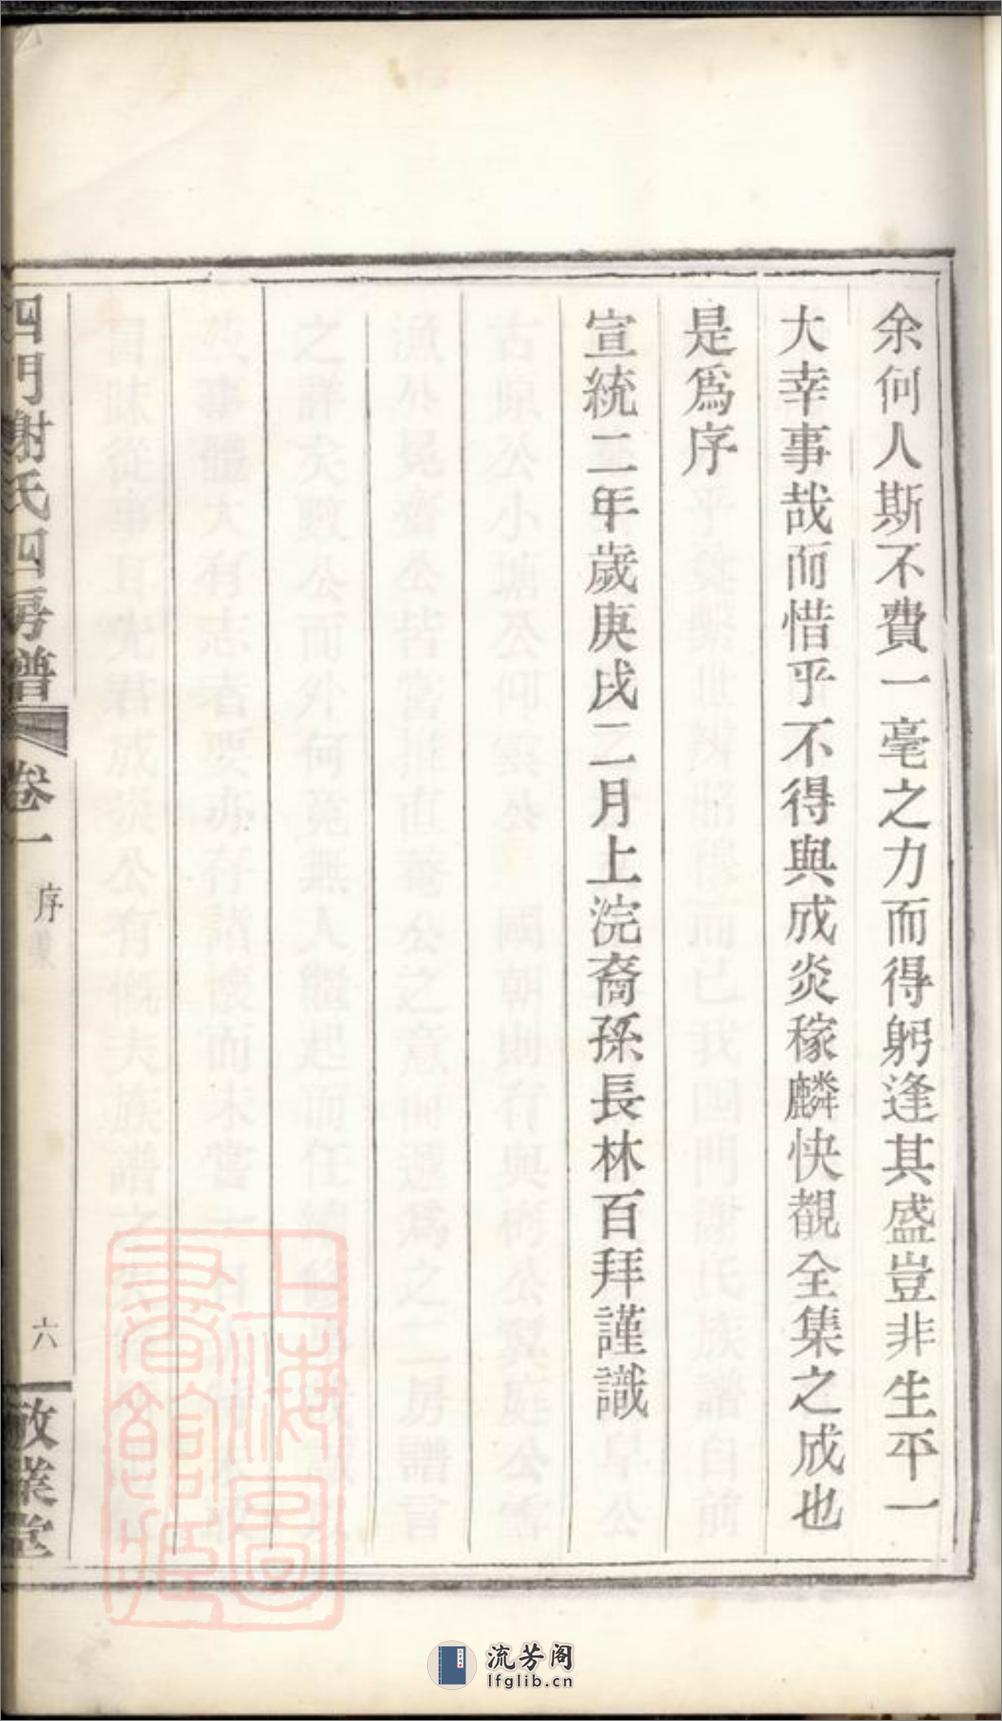 余何人斯不費一毫之力而得躬逢其盛豈非生平一
大幸事哉而惜乎不得與成炎稼麟快覩全集之成也
是爲序
宣統二年歲庚戌二月上浣裔孫長林百拜謹識
四門謝氏四房譜 卷一 序 六 敬業堂
上海圖書館藏
流芳阁
lfglib.cn